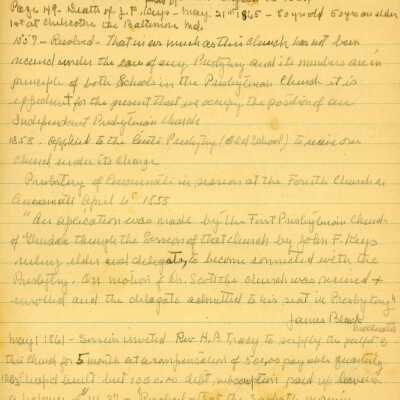 Page 49. Death of J. F. Keys - May 21st 1865 - 80 yr old 50 yrs an elder
1st at Chilicothe the Baltimore Md.
1857 - Resolved - That in as much as this Church was not been
received under the care of any Presbytery and its members are in
principle of both Schools in the Presbyterian Church it is
expedient for the present that we occupy the position of an
Independent Presbyterian Church
1858 - applied to the Cinti Presbytery (Old School) to receive our
church under its charge
Presbytery of Cincinnati in session at the Fourth Church in
Cincinnati April 6" 1858
"An application was made by the First Presbyterian Church
of through the Session of that church by John F. Keys
ruling elder and delegate, to become connected with the
Presbytery. On motion of Dr. Scott the church was received &
enrolled and the delegate admitted to his seat in Presbytery"
James Black
Moderator
May 1 1861 - Session invited Rev H. A. Tracy to supply the pulpit of
this Church for 5 months at a compensation of 50.00 payable quarterly
built but 100.00 debt, subscription paid up leaving
a balance 37 - Resolved - that the Sabbath